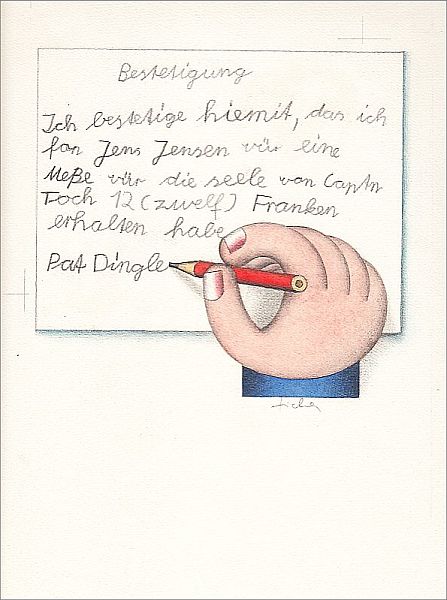 Bestetigung
Ich bestetige hiemit, das ich
fon Jens Jensen vür eine
Meße vür die seele von Captn
Toch 12 (zwelf) Franken
erhalten habe
Pat Dingle